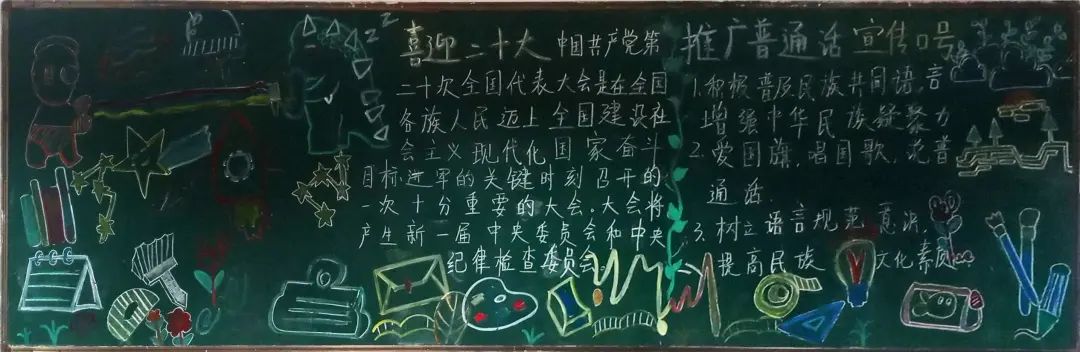 喜迎二十大 中国共产党第
二十次全国代表大会是在全国
各族人民迈上全国建设社
会主义现代化国家奋斗
目标进军的关键时刻召开的
一次十分重要的大会,大会将
产生新一届中央委员会和中央
纪律检查委员会
推广普通话宣传口号
1.积极普及民族共同语,言
增强中华民族凝聚力
2.爱国旗,唱国歌,说普
通话.
3.树立语言规范意识,
提高民族文化素质.